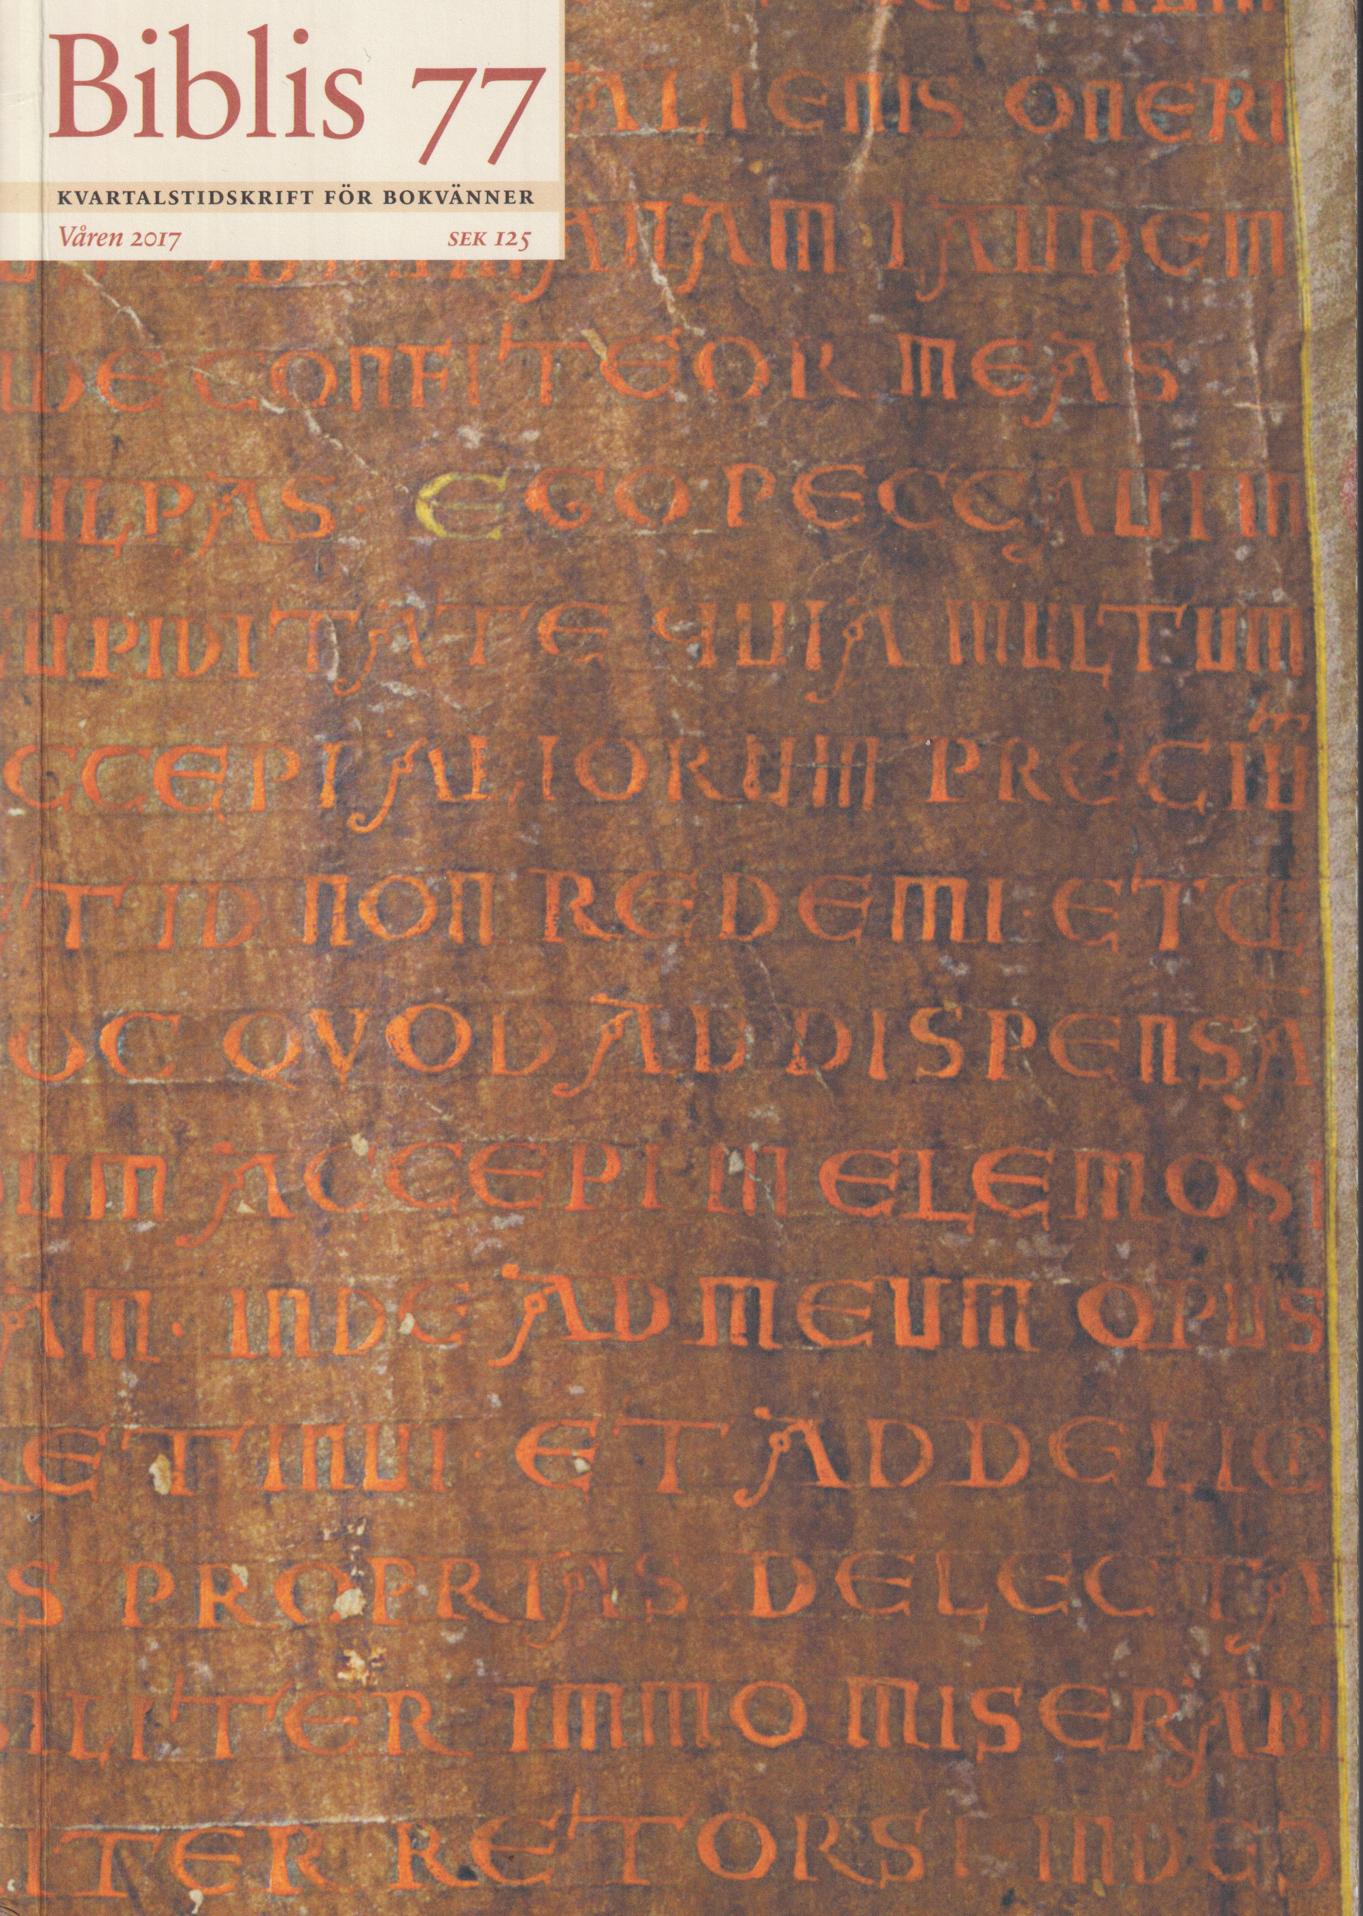 Biblis 77
KVARTALSTIDSKRIFT FÖR BOKVÄNNER
Våren 2017 SEK 125
ALIENIS ONERI
AM TANDEM
DE CONFITEOR MEAS
ULPAS EGO PECCAUI IN
UPIDITATE QUIA MULTUM
CCEPI ALIORUM PRECIU
T ID NON REDEMI · ET
OC QVOD AD DISPENSA
UM ACCEPI IN ELEMOSI
AM · INDE AD MEUM OPUS
ETINUI · ET AD DELIC
S PROPRIAS DELECTA
ILITER IMMO MISERABI
ITER RETORSI INDE